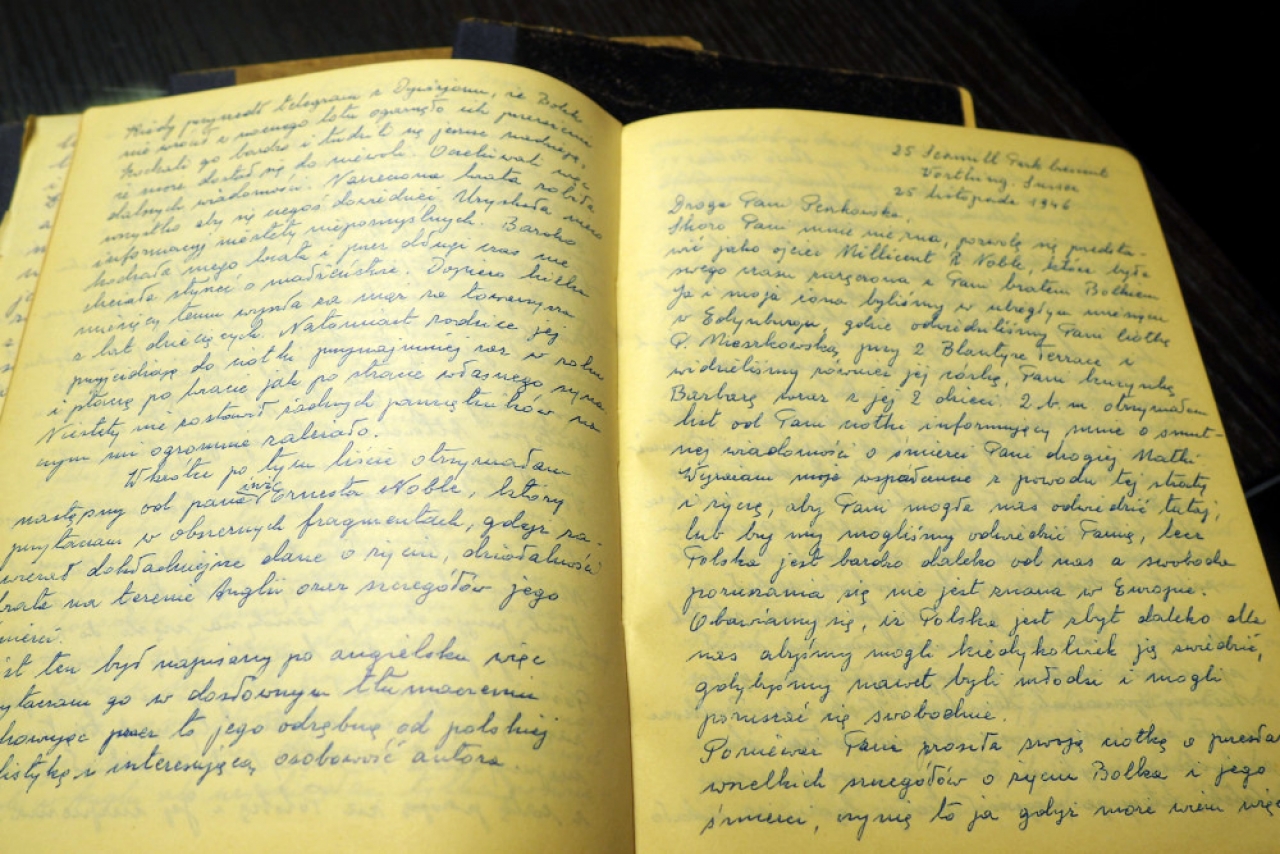 Kiedy przyszedł telegram z Dywizjonu, że Bolek
nie wrócił z nocnego lotu ogarnęło ich przerażenie
kochali go bardzo i łudzili się jeszcze nadzieją,
że może dostał się do niewoli. Oczekiwali więc
dalszych wiadomości. Narzeczona brata robiła
wszystko aby się czegoś dowiedzieć. Uzyskała
informacyj niestety niepomyślnych. Bardzo
kochała mego brata i przez długi czas nie
chciała słyszeć o małżeństwie. Dopiero kilka
miesięcy temu wyszła za mąż za towarzysza
z lat dziecięcych. Natomiast rodzice jej
przyjeżdżają do ciotki przynajmniej raz w roku
i płaczą po bracie jak po stracie własnego syna.
Niestety nie zostawił żadnych pamiętników na
czym mi ogromnie zależało.
Wkrótce po tym liście otrzymałam
następny od pana inż Ernesta Noble, który
przytaczam w obszernych fragmentach, gdyż za-
wierał dokładniejsze dane o życiu, działalności
brata na terenie Anglii oraz szczegółów jego
śmierci.
ist ten był napisany po angielsku więc
ytaczam go w dosłownym tłumaczeniu
howując przez to jego odrębną od polskiej
listykę i interesującą osobowość autora
25 Park Crescent
Worthing. Sussex
25 listopada 1946
Droga Pani Pieńkowska,
Skoro Pani mnie nie zna, pozwolę się przedsta-
wić jako ojciec Millicent R Noble, która była
swego czasu zaręczona z Pani bratem Bolkiem
Ja i moja żona byliśmy w ubiegłym miesiącu
w Edynburgu, gdzie odwiedziliśmy Pani ciotkę
P. Mieszkowską, przy 2 Blantyre Terrace i
widzieliśmy również jej córkę, Pani kuzynkę
Barbarę wraz z jej 2 dzieci. 2 b.m. otrzymałem
list od Pani ciotki informujący mnie o smut-
nej wiadomości o śmierci Pani drogiej Matki
Wyrażam moje współczucie z powodu tej straty
i życzę, aby Pani mogła nas odwiedzić tutaj,
lub by my mogliśmy odwiedzić Panią, lecz
Polska jest bardzo daleko od nas a swoboda
poruszania się nie jest znana w Europie.
Obawiamy się, iż Polska jest zbyt daleko dla
nas abyśmy mogli kiedykolwiek ją zwiedzić,
gdybyśmy nawet byli młodzi i mogli
poruszać się swobodnie.
Ponieważ Pani prosiła swoją ciotkę o przesła
wszelkich szczegółów o życiu Bolka i jego
śmierci, czynię to ja gdyż może wiem więc